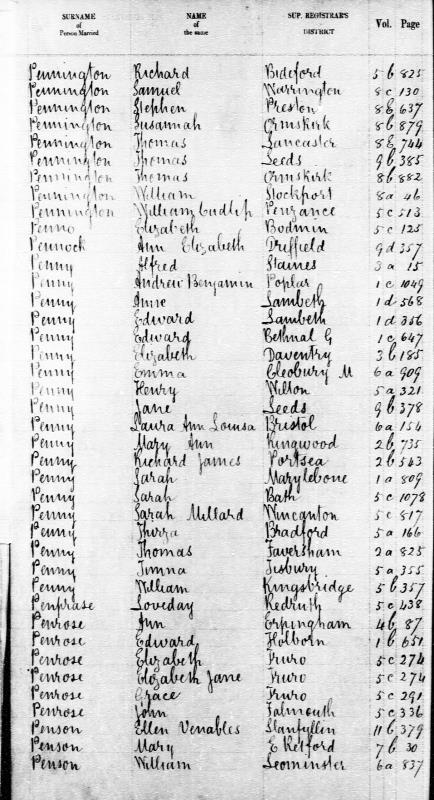 SURNAME of Person Married NAME of the same SUP. REGISTRAR'S DISTRICT Vol. Page
Pennington Richard Bideford 5 b 825
Pennington Samuel Warrington 8 c 130
Pennington Stephen Preston 8 e 637
Pennington Susannah Ormskirk 8 b 879
Pennington Thomas Lancaster 8 e 744
Pennington Thomas Leeds 9 b 385
Pennington Thomas Ormskirk 8 b 882
Pennington William Stockport 8 a 46
Pennington William Cudlip Penzance 5 c 513
Penno Elizabeth Bodmin 5 c 125
Pennock Ann Elizabeth Driffield 9 d 357
Penny Alfred Staines 3 a 15
Penny Andrew Benjamin Poplar 1 c 1049
Penny Anne Lambeth 1 d 568
Penny Edward Lambeth 1 d 356
Penny Edward Bethnal G 1 c 647
Penny Elizabeth Daventry 3 b 185
Penny Emma Cleobury M 6 a 909
Penny Henry Wilton 5 a 321
Penny Jane Leeds 9 b 378
Penny Laura Ann Louisa Bristol 6 a 154
Penny Mary Ann Ringwood 2 b 735
Penny Richard James Portsea 2 b 543
Penny Sarah Marylebone 1 a 809
Penny Sarah Bath 5 c 1078
Penny Sarah Millard Wincanton 5 c 817
Penny Thirza Bradford 5 a 166
Penny Thomas Faversham 2 a 825
Penny Timna Tisbury 5 a 355
Penny William Kingsbridge 5 b 357
Penphrase Loveday Redruth 5 c 438
Penrose Ann Erpingham 4 b 87
Penrose Edward Holborn 1 b 651
Penrose Elizabeth Truro 5 c 274
Penrose Elizabeth Jane Truro 5 c 274
Penrose Grace Truro 5 c 291
Penrose John Falmouth 5 c 336
Penson Ellen Venables Llanfyllin 11 b 379
Penson Mary E Retford 7 b 30
Penson William Leominster 6 a 837